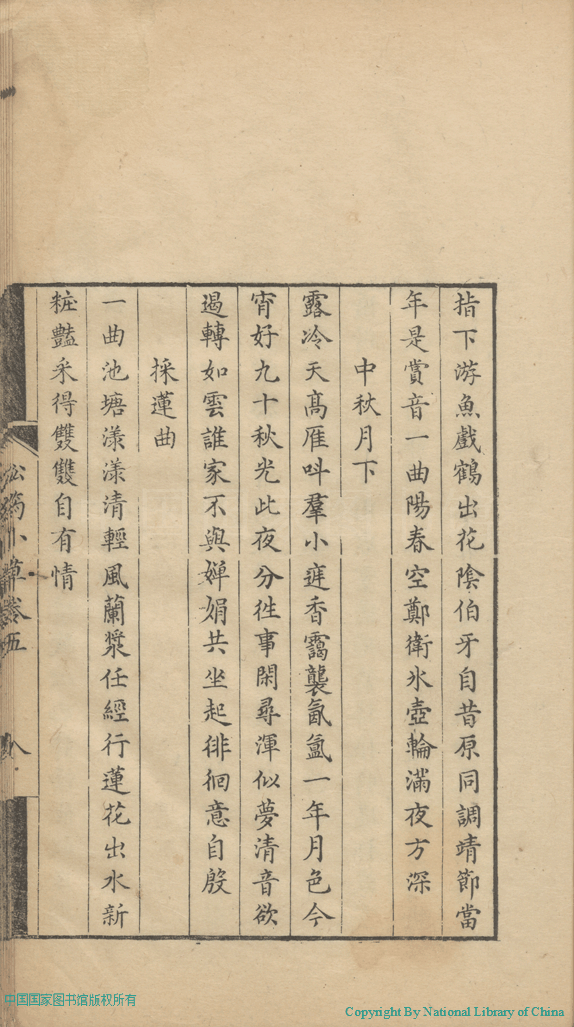 指下游魚戲鶴出花陰伯牙自昔原同調靖節當
年是賞音一曲陽春空鄭衛氷壺輪滿夜方深
中秋月下
露冷天高雁呌羣小庭香靄襲氤氳一年月色今
宵好九十秋光此夜分徃事閑尋渾似夢清音欲
遏轉如雲誰家不與嬋娟共坐起徘徊意自殷
採蓮曲
一曲池塘漾漾清輕風蘭槳任經行蓮花出水新
粧豔采得雙雙自有情
松筠小草卷五
八
中国国家图书馆版权所有
Copyright By National Library of China